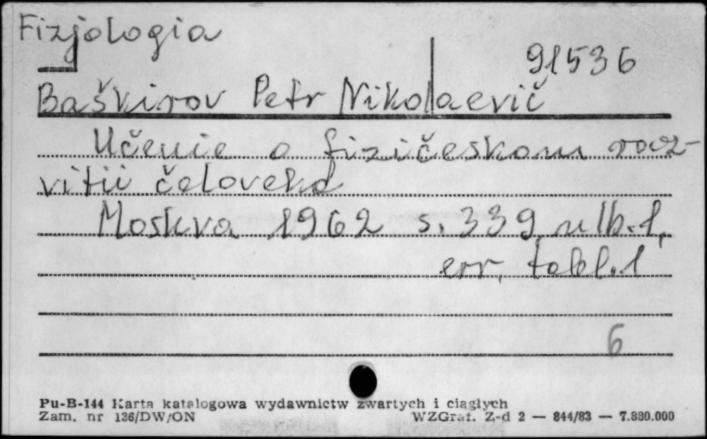 Fizjologia
91536
Baškirov Petr Nikolaevič
Učenie o fizičeskom raz-
vitii čeloveka
Moskva 1962 s. 339, nlb. 1,
err. tabl. 1
6
Pu-B-144 Karta katalogowa wydawnictw zwartych i ciągłych
Zam. nr 136/DW/ON WZGraf. Z-d 2 — 844/83 — 7.880.000